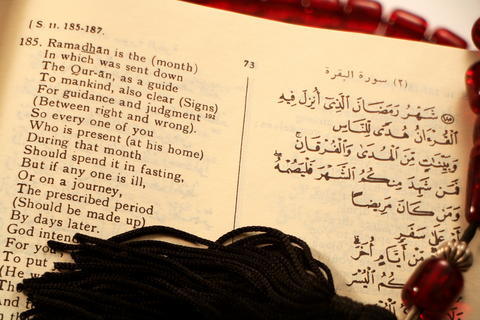 [ S. II. 185-187.
73
(٢) سورة البقرة
185. Ramadhān is the (month)
In which was sent down
The Qur-ān, as a guide
To mankind, also clear (Signs)
For guidance and judgment 192
(Between right and wrong).
So every one of you
Who is present (at his home)
During that month
Should spend it in fasting,
But if any one is ill,
Or on a journey,
The prescribed period
(Should be made up)
By days later.
God inten
For you
To put
(He w
Th
And t
شَهْرُ رَمَضَانَ الَّذِىٓ أُنْزِلَ فِيهِ
الْقُرْءَانُ هُدًى لِّلنَّاسِ
وَبَيِّنَٰتٍ مِّنَ الْهُدَىٰ وَالْفُرْقَانِ ۚ
فَمَن شَهِدَ مِنكُمُ الشَّهْرَ فَلْيَصُمْهُ ۖ
وَمَن كَانَ مَرِيضًا
أَوْ عَلَىٰ سَفَرٍ
مِّنْ أَيَّامٍ أُخَرَ ۗ
كُمُ الْيُسْرَ